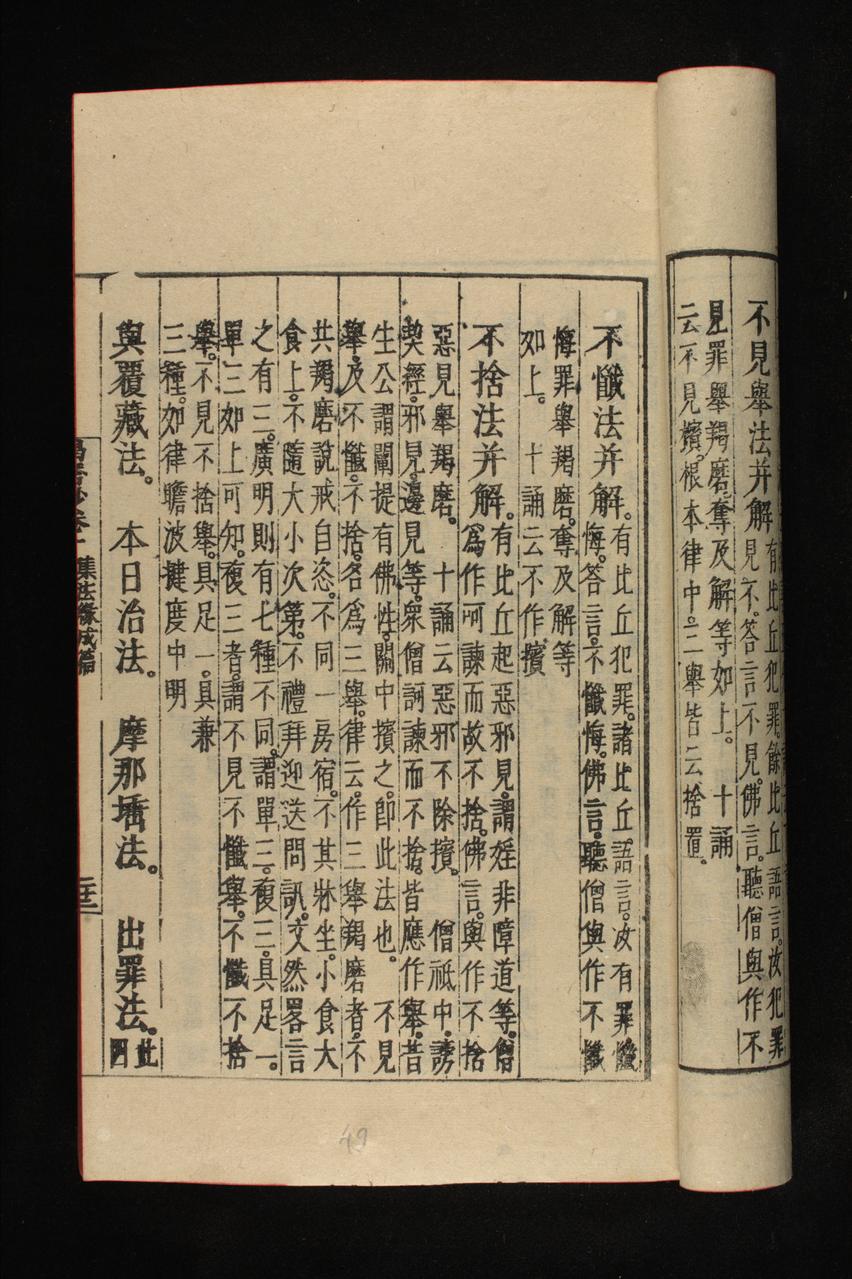 不見舉法并解
有比丘犯罪。餘比丘語言。汝犯罪
見不。答言不見。佛言。聽僧與作不
見罪舉羯磨。奪及解等如上。　十誦
云不見擯。根本律中。三舉皆云捨置。
不懺法并解。
有比丘犯罪。諸比丘。語言。汝有罪懺
悔。答言。不懺悔。佛言。聽僧與作不懺
悔罪舉羯磨。奪及解等
如上。　十誦云不作擯
不捨法并解。
有比丘起惡邪見。謂婬非障道等。僧
為作呵諫而故不捨。佛言。與作不捨
惡見舉羯磨。　十誦云惡邪不除擯。　僧祇中。謗
契經。邪見。邊見等。眾僧訶諫而不捨。皆應作舉。昔
生公謂闡提有佛性。關中擯之。即此法也。　不見
舉。及不懺。不捨。名為三舉。律云。作三舉羯磨者。不
共羯磨說戒自恣。不同一房宿。不其牀坐。小食大
食上。不隨大小次第。不禮拜迎送問訊。文然畧言
之有三。廣明則有七種不同。謂單三。複三。具足一。
單三如上可知。複三者。謂不見不懺舉。不懺不捨
舉。不見不捨舉。具足一。具兼
三種。如律瞻波揵度中明
與覆藏法。　本日治法。　摩那埵法。　出罪法。此
四
集法緣成篇
二十三
49